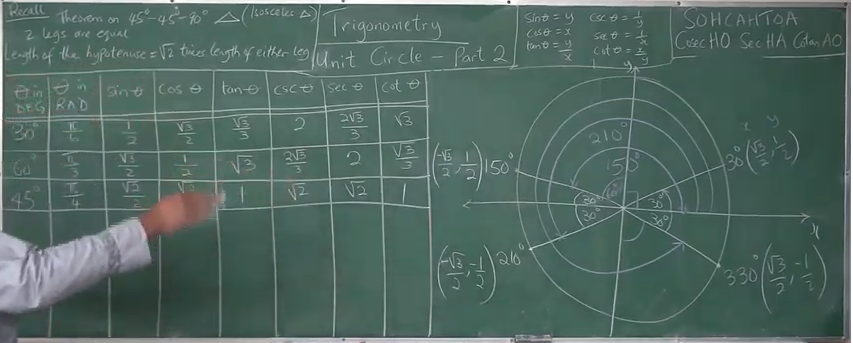 Recall Theorem on 45°-45°-90° △ (Isosceles △)
2 legs are equal
Length of the hypotenuse = √2 times length of either leg
Trigonometry
Unit Circle - Part 2
sin θ = y csc θ = 1/y
cos θ = x sec θ = 1/x
tan θ = y/x cot θ = x/y
SOHCAHTOA
CosecHO SecHA CotanAO
θ in DEG θ in RAD sin θ cos θ tan θ csc θ sec θ cot θ
30° π/6 1/2 √3/2 √3/3 2 2√3/3 √3
60° π/3 √3/2 1/2 √3 2√3/3 2 √3/3
45° π/4 √2/2 1 √2 √2 1
y
210°
150°
x y
(-√3/2, 1/2) 150°
30° (√3/2, 1/2)
30° 30°
30° 30°
x
(-√3/2, -1/2) 210°
330° (√3/2, -1/2)